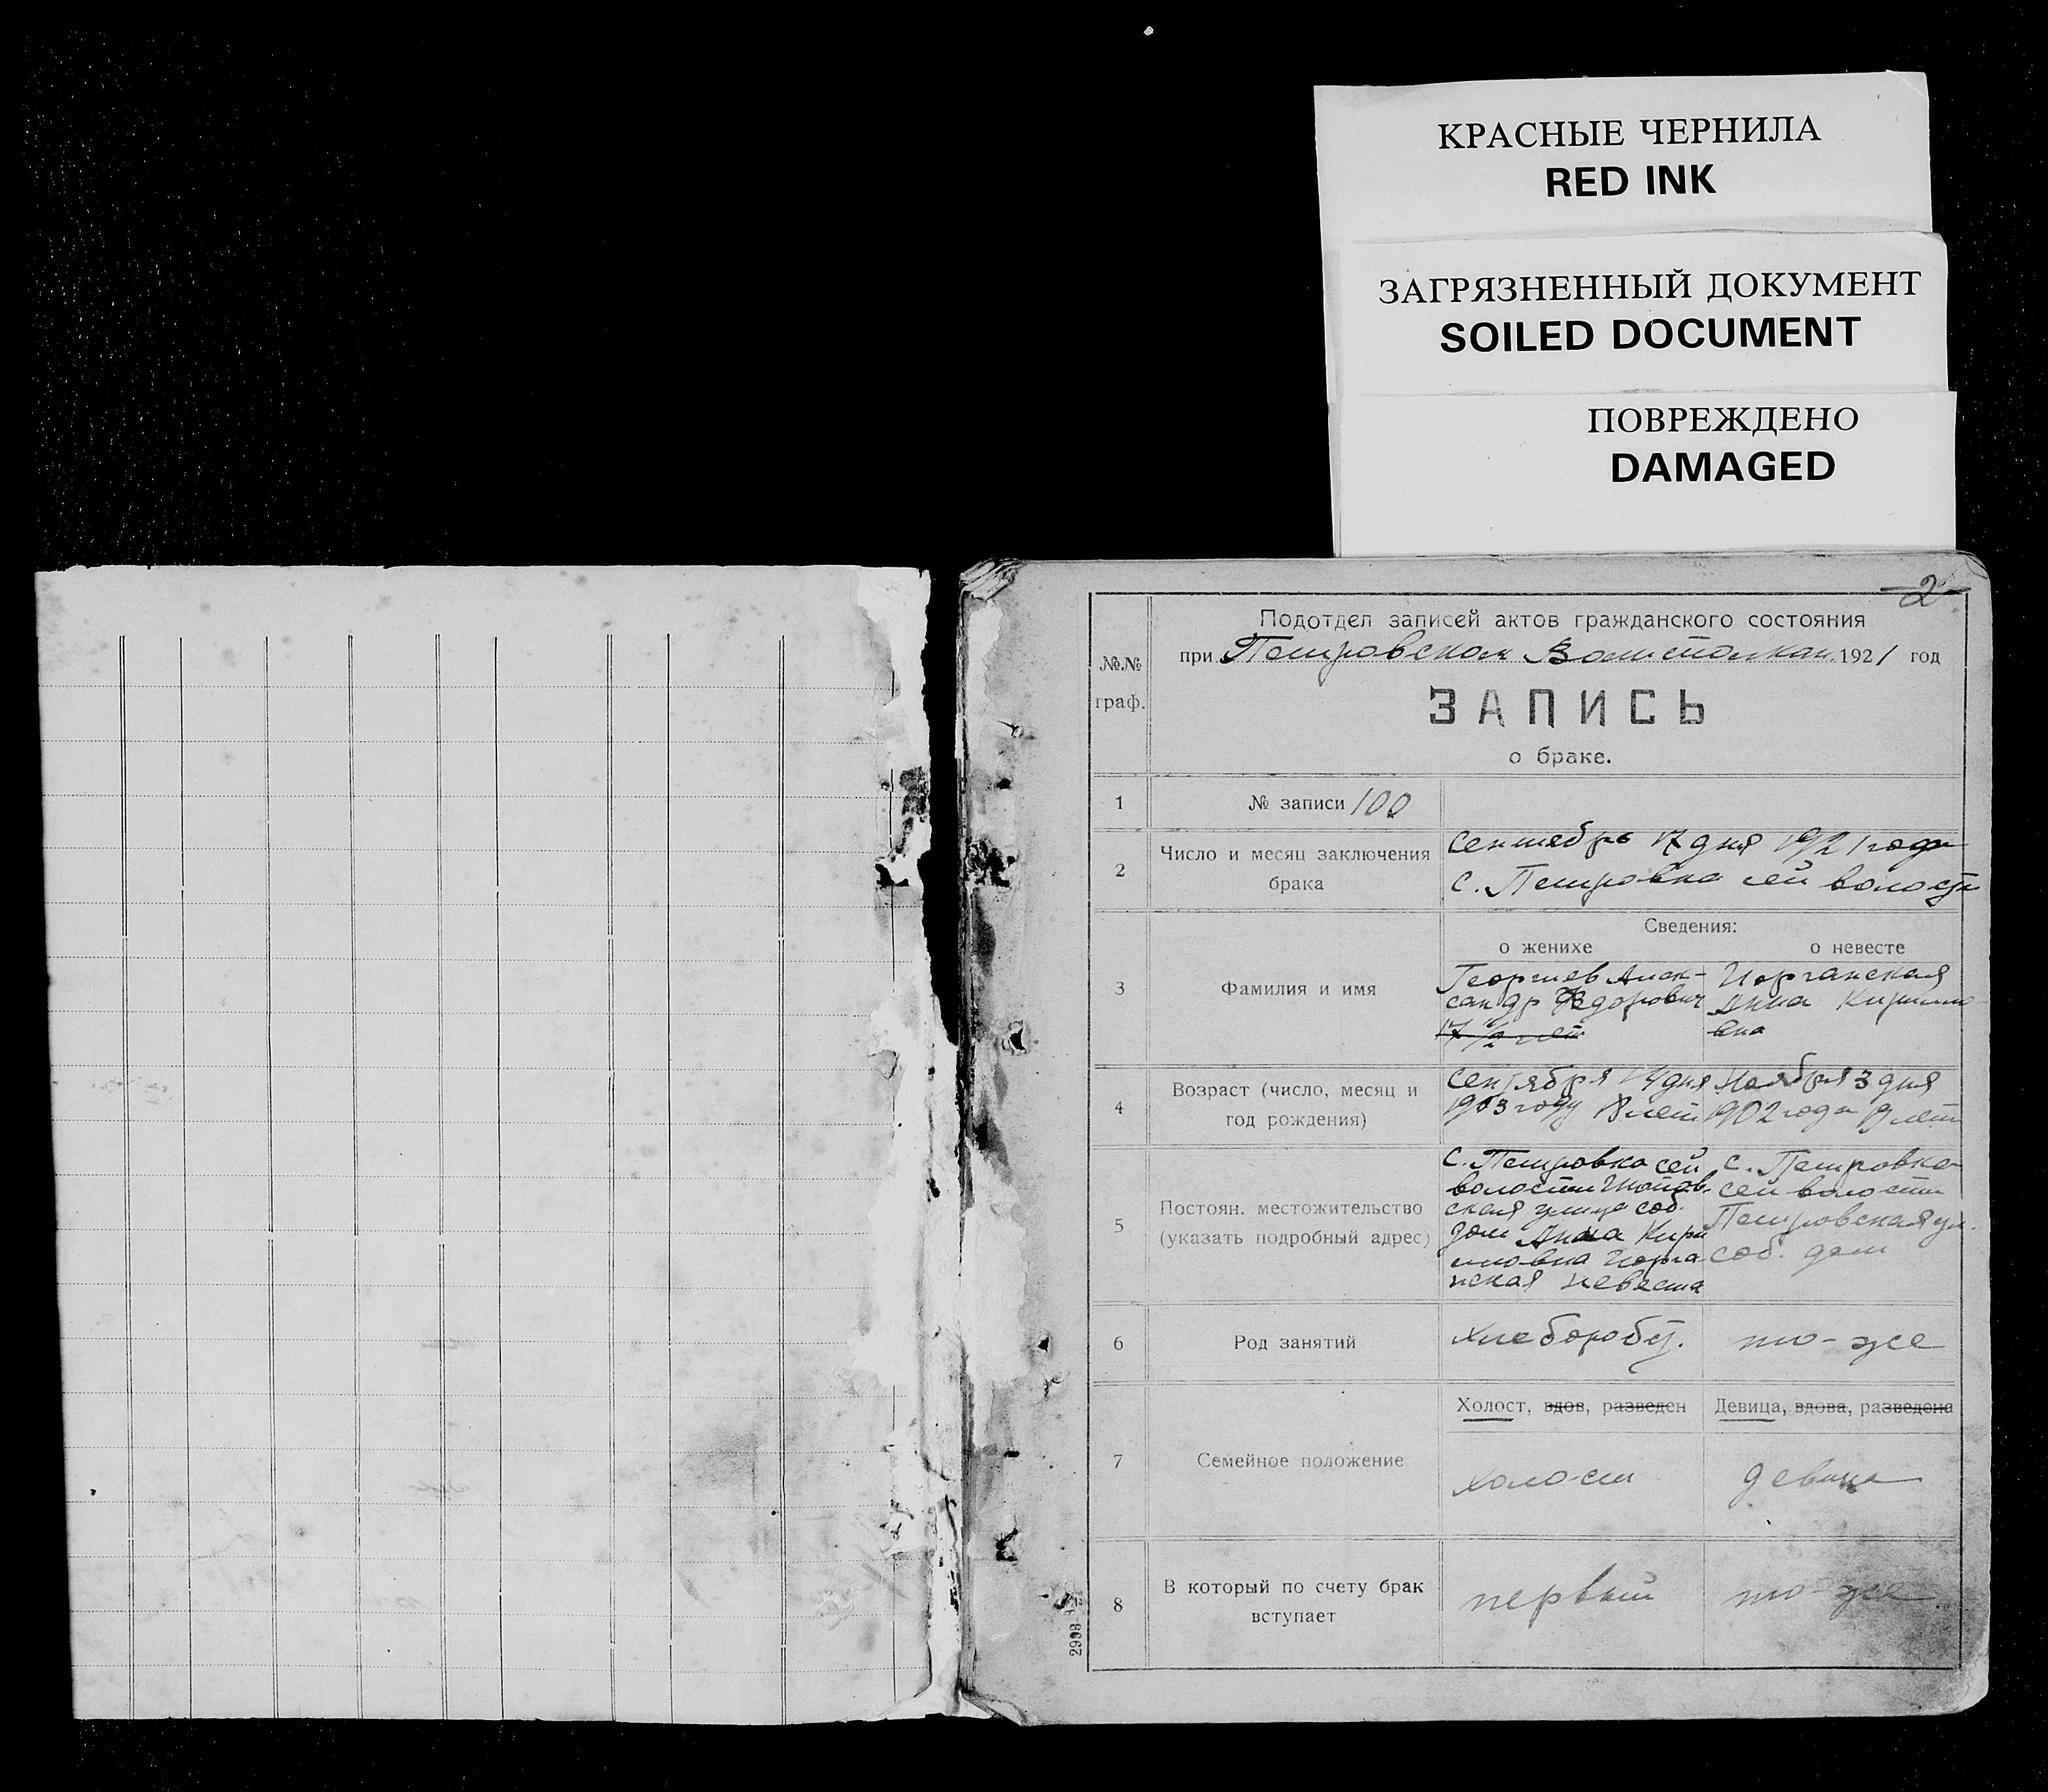 КРАСНЫЕ ЧЕРНИЛА
RED INK
ЗАГРЯЗНЕННЫЙ ДОКУМЕНТ
SOILED DOCUMENT
ПОВРЕЖДЕНО
DAMAGED
2
№.№ граф.
Подотдел записей актов гражданского состояния
при Петровском 1921 год
ЗАПИСЬ
о браке.
1
№ записи 100
2
Число и месяц заключения
брака
Сентябрь 17 дня 1921 года
с. Петровка сей волости
3
Фамилия и имя
Сведения:
о женихе
Георгиев Алек-
сандр Федорович
17 1/2 лет
о невесте
Чорганская
Анна Кирило-
вна
4
Возраст (число, месяц и
год рождения)
Сентября дня
1903 году 18 лет
Ноября 3 дня
1902 года 19 лет
5
Постоян. местожительство
(указать подробный адрес)
с. Петровка сей
волости
ская улица соб.
дом Анна Кири
ловна Чорга
нская невеста
с. Петровка
сей волости
Петровская ул.
соб. дом
6
Род занятий
хлебороб
то-же
7
Семейное положение
Холост, вдов, разведен
холост
Девица, вдова, разведена
девица
8
В который по счету брак
вступает
первый
то-же
2998